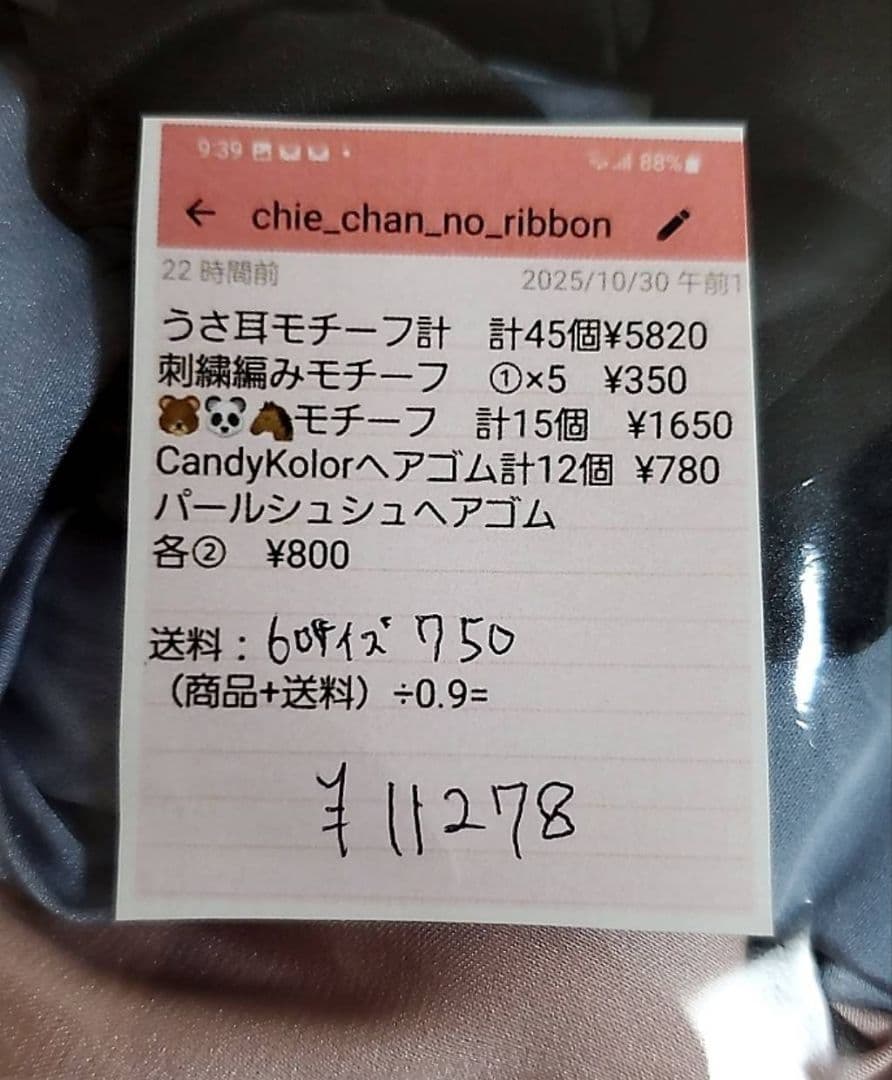 9:39 88%
← chie_chan_no_ribbon
22 時間前 2025/10/30 午前1
うさ耳モチーフ計 計45個¥5820
刺繍編みモチーフ ①×5 ¥350
🐻🐼🐴モチーフ 計15個 ¥1650
CandyKolorヘアゴム計12個 ¥780
パールシュシュヘアゴム
各② ¥800
送料：60サイズ 750
（商品+送料）÷0.9=
¥11278